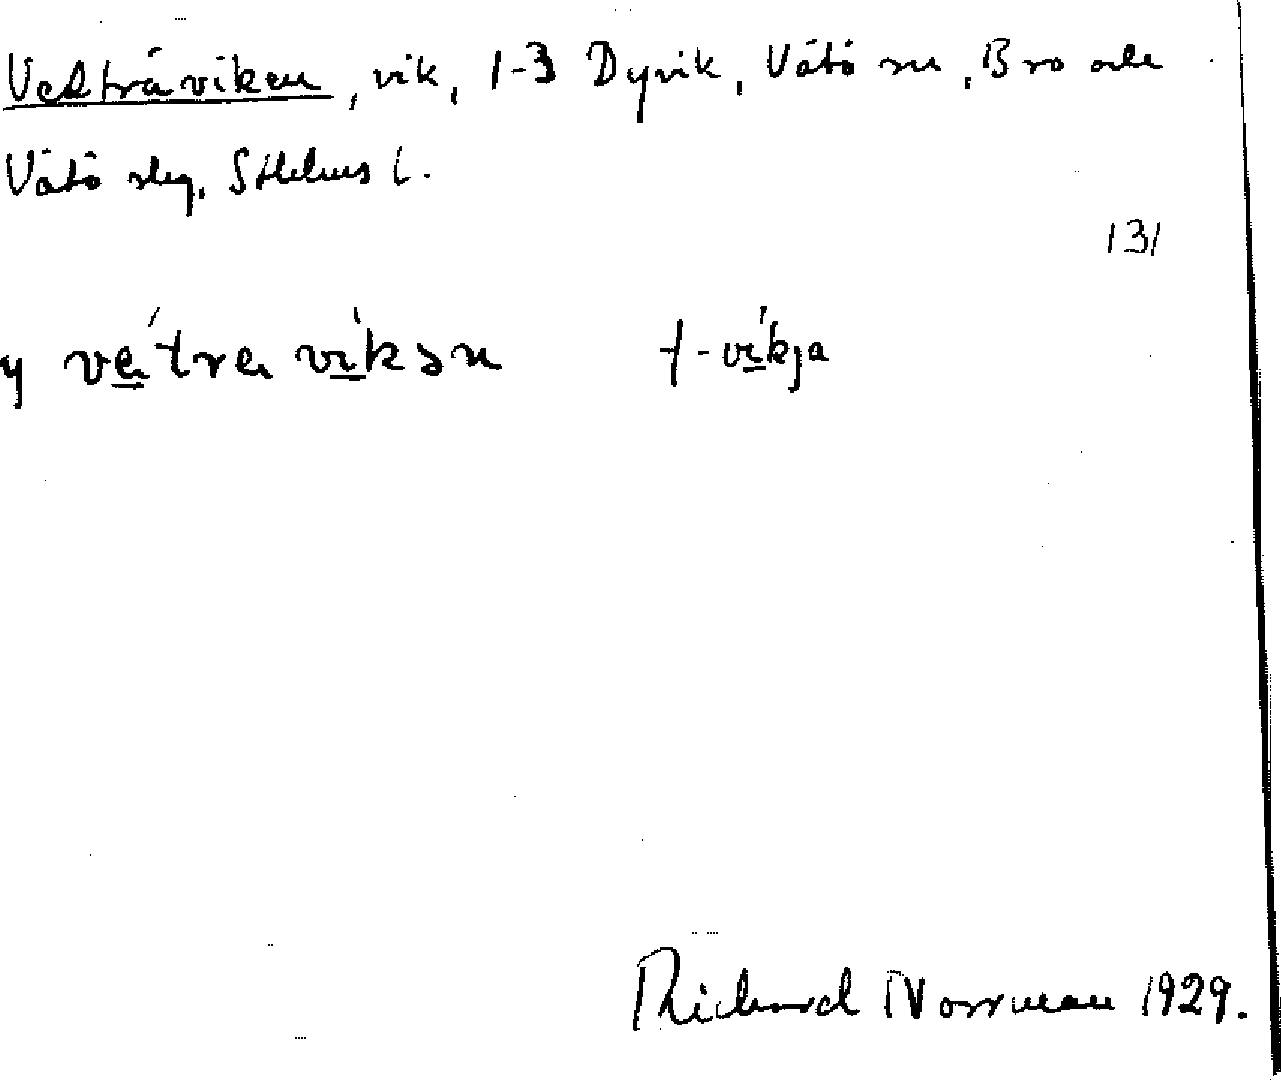 Västräviken, vik, 1-3 Dyvik, Vätö sn, Bro och
Vätö slg, Sthlms l.
131
y vé̱trɐ ví̱kən † -ví̱kja
Richard Norrman 1929.